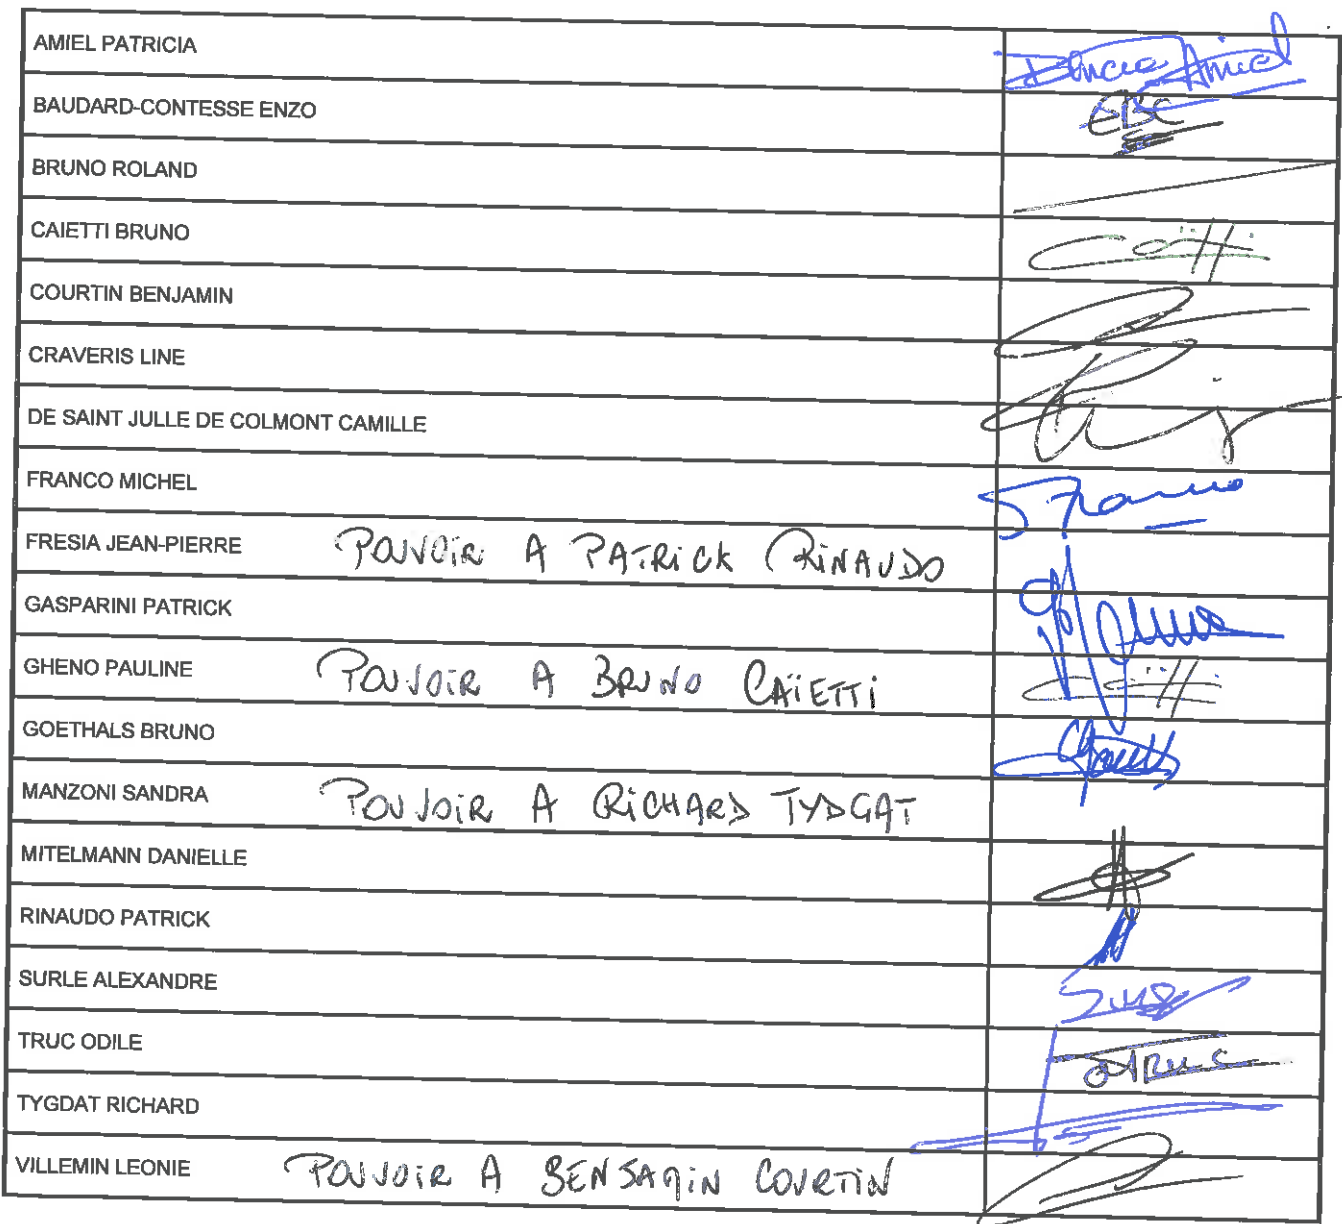 AMIEL PATRICIA
BAUDARD-CONTESSE ENZO
EBC
BRUNO ROLAND
CAIETTI BRUNO
COURTIN BENJAMIN
CRAVERIS LINE
DE SAINT JULLE DE COLMONT CAMILLE
FRANCO MICHEL
FRESIA JEAN-PIERRE POUVOIR A PATRICK RINAUDO
GASPARINI PATRICK
GHENO PAULINE POUVOIR A BRUNO CAÏETTI
GOETHALS BRUNO
MANZONI SANDRA POUVOIR A RICHARD TYDGAT
MITELMANN DANIELLE
RINAUDO PATRICK
SURLE ALEXANDRE
TRUC ODILE
TYGDAT RICHARD
VILLEMIN LEONIE POUVOIR A BENJAMIN COURTIN